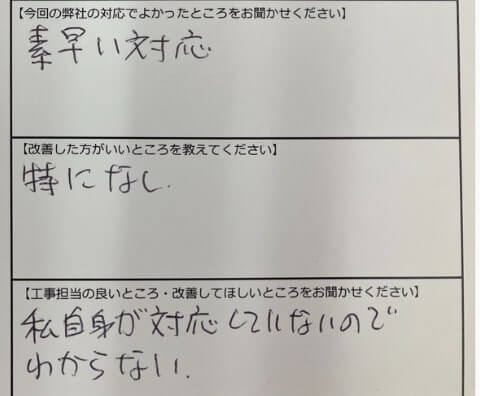 【今回の弊社の対応でよかったところをお聞かせください】
素早い対応
【改善した方がいいところを教えてください】
特になし.
【工事担当の良いところ・改善してほしいところをお聞かせください】
私自身が対応していないので
わからない.